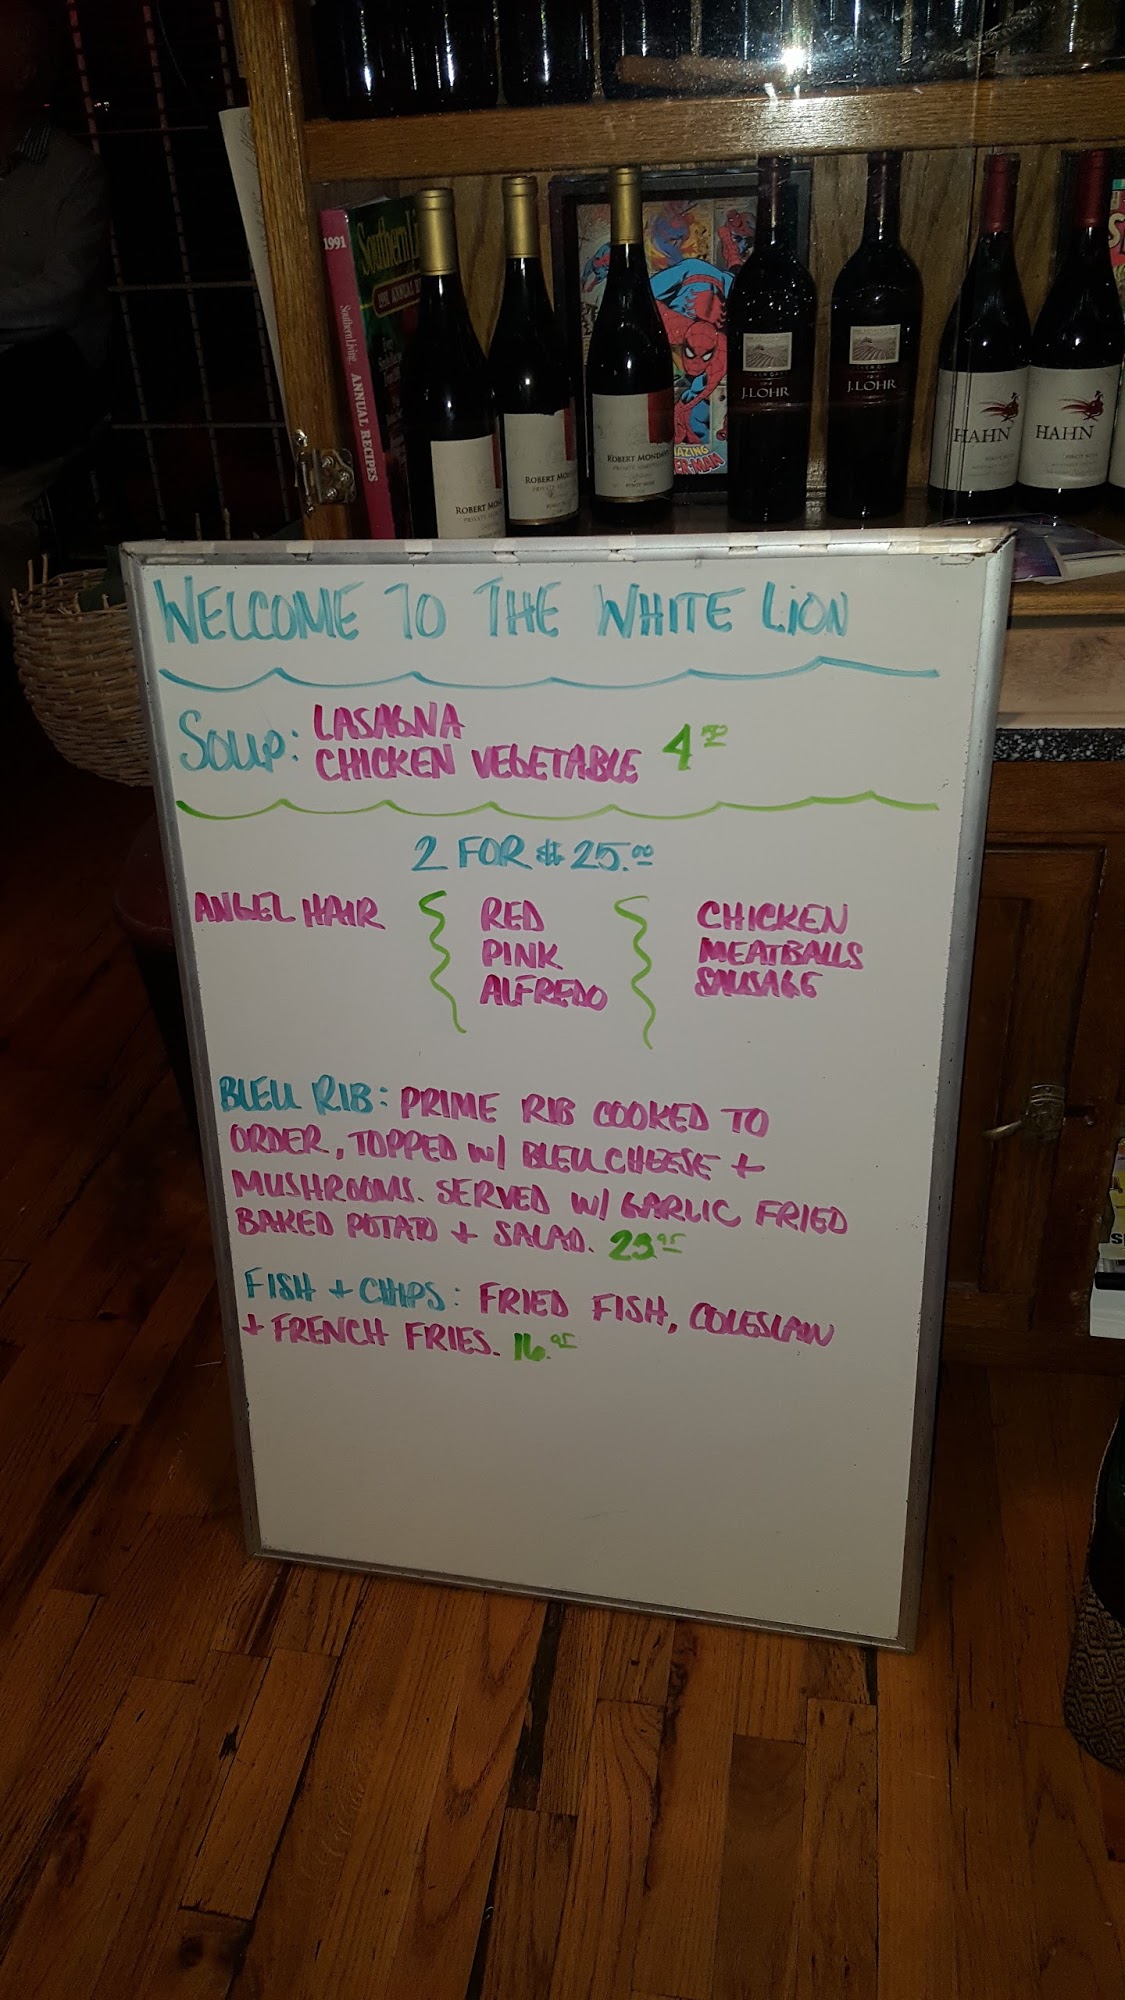 1991
Southern Living
ANNUAL RECIPES
Southern Li
1991 ANNUAL RE
ROBERT MON
ROBERT MONDA
PRIVATE SELEC
ROBERT MONDAVI
PRIVATE SELECTION
PINOT NOIR
AMAZING
ER-MAN
J.LOHR
J.LOHR
HAHN
HAHN
PINOT NOIR
WELCOME TO THE WHITE LION
SOUP: LASAGNA
CHICKEN VEGETABLE 4.50
2 FOR $25.00
ANGEL HAIR RED CHICKEN
PINK MEATBALLS
ALFREDO SAUSAGE
BLEU RIB: PRIME RIB COOKED TO
ORDER, TOPPED W/ BLEU CHEESE +
MUSHROOMS. SERVED W/ GARLIC FRIED
BAKED POTATO + SALAD. 23.95
FISH + CHIPS: FRIED FISH, COLESLAW
+ FRENCH FRIES. 16.95